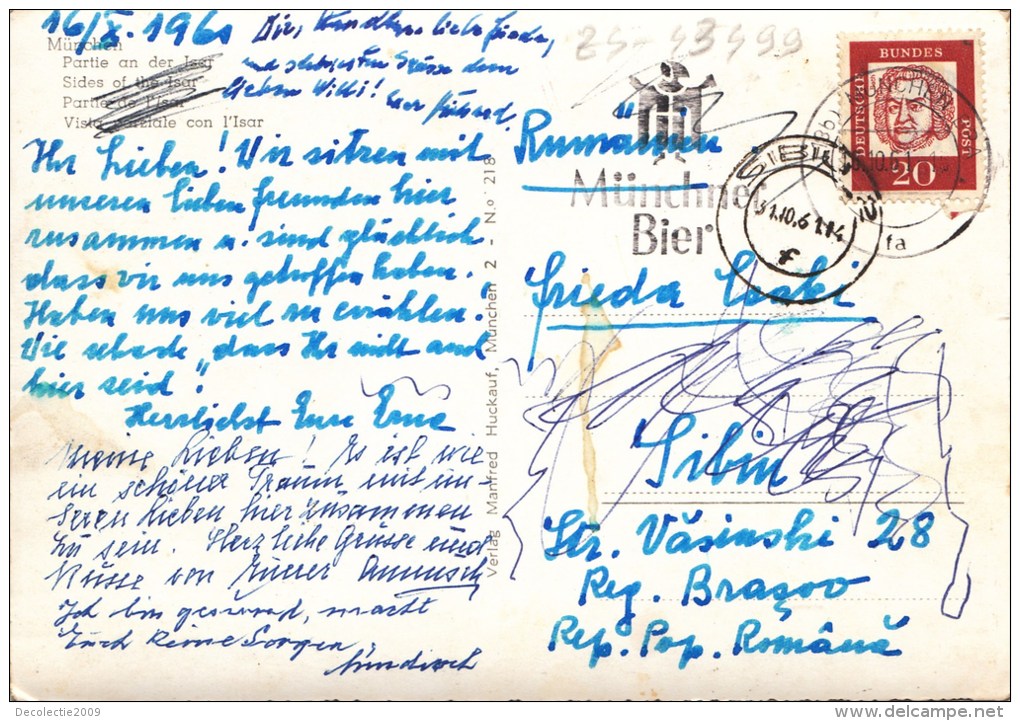 16/X. 1961
lieben Willi!
München
Partie an der Isar
Sides of the Isar
Partie de l'Isar
Vista parziale con l'Isar
Ihr Lieben! Wir sitzen mit
unseren lieben Freunden hier
zusammen u. sind glücklich
dass wir uns getroffen haben.
Haben uns viel zu erzählen.
Wie schade, dass Ihr nicht auch
hier seid!
Herzlichst Eure Erna
Meine Lieben! Es ist wie
ein schöner Traum mit un-
seren Lieben hier zusammen
zu sein. Herzliche Grüsse und
Küsse von Eurer Annusch
Ich bin gesund, macht
Euch keine Sorgen
Verlag Manfred Huckauf, München 2 - N.o 218
25-43499
Rumänien
Münchner
Bier
DEUTSCHE
BUNDES
POST
20
SIBIU
31.10.61.14
f
fa
Frieda Csaki
Sibiu
Str. Văsinski 28
Reg. Brașov
Rep. Pop. Română
Decolectie2009